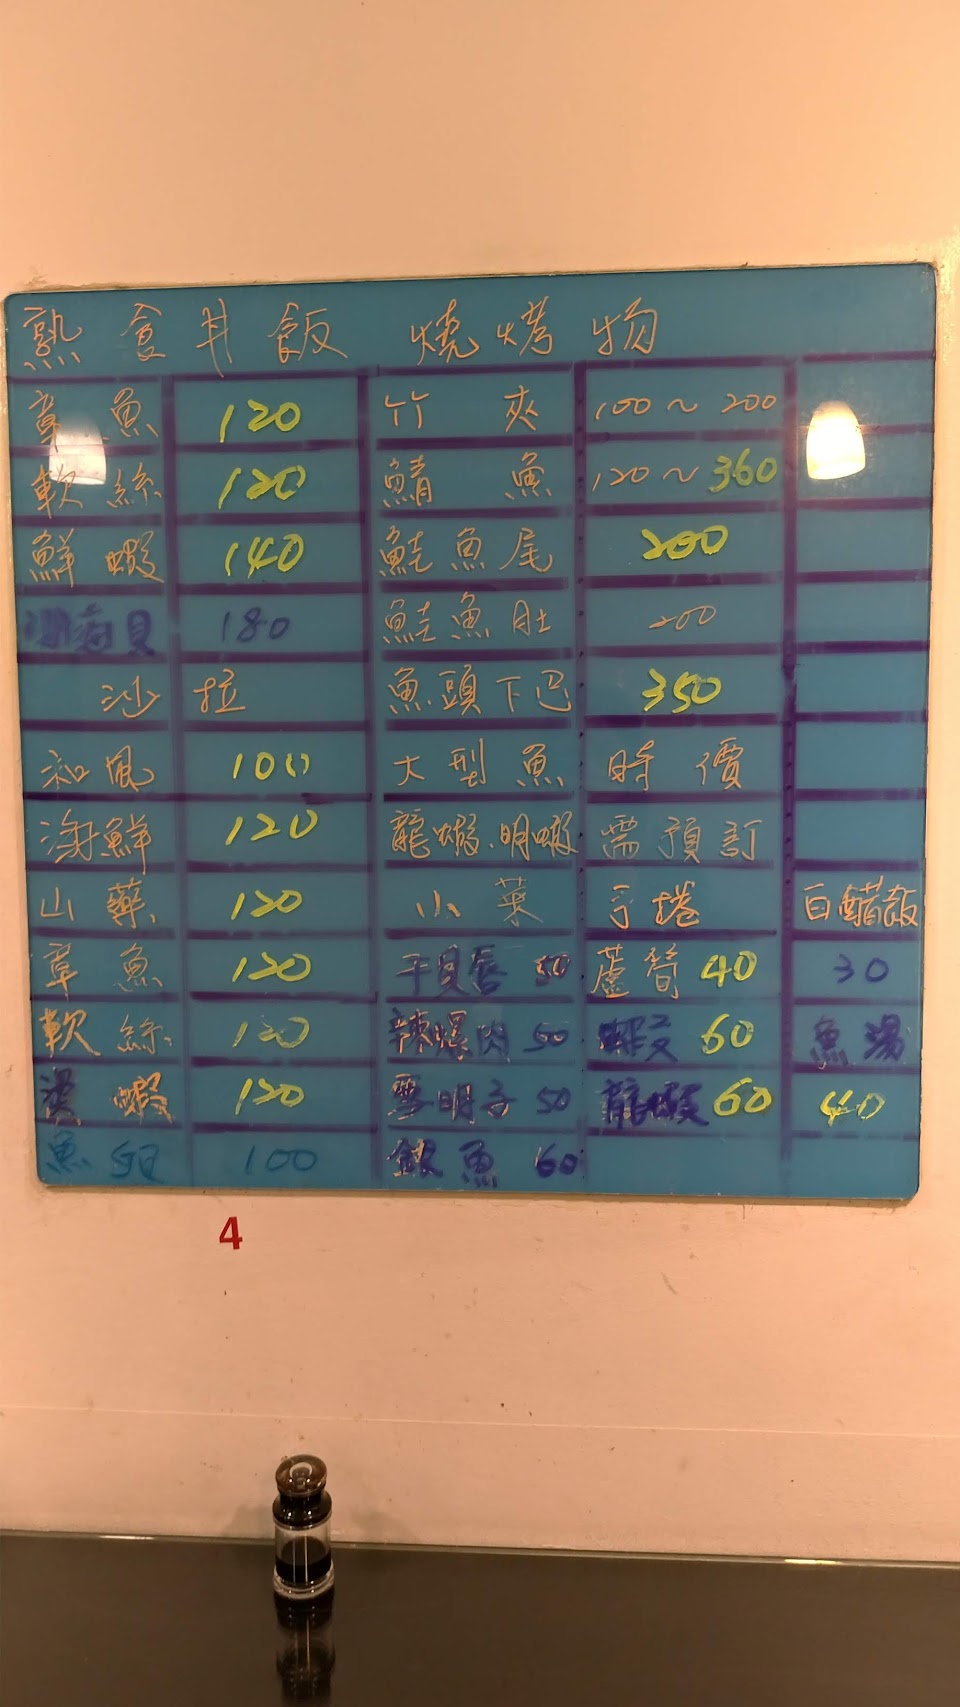 熟食丼飯 燒烤物
章魚 120 竹夾 100~200
軟絲 120 鯖魚 120~360
鮮蝦 140 鮭魚尾 200
貝 180 鮭魚肚 200
沙拉 魚頭下巴 350
和風 100 大型魚 時價
海鮮 120 龍蝦.明蝦 需預訂
山藥 120 小菜 手捲 白醋飯
章魚 120 干貝唇 50 蘆筍 40 30
軟絲 120 辣螺肉 50 蝦 60 魚湯
蝦 120 50 龍蝦 60 40
魚卵 100 銀魚 60
4